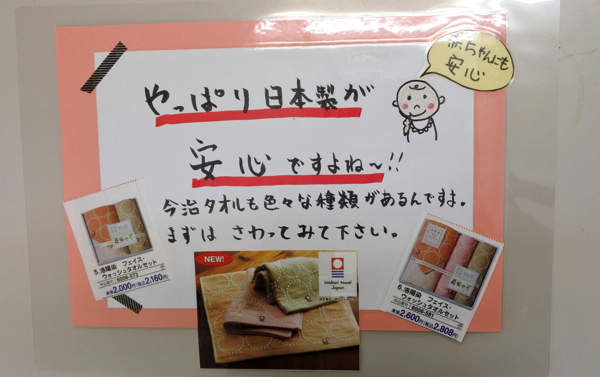 赤ちゃんにも
安心
やっぱり日本製が
安心ですよね〜!!
今治タオルも色々な種類があるんですよ。
まずは さわってみて下さい。
5.洛陽染 フェイス・
ウォッシュタオルセット
6006-573
本体2,000円(税込2,160円)
NEW!
imabari towel
Japan
6.洛陽染 フェイス・
ウォッシュタオルセット
6006-581
本体2,600円(税込2,808円)